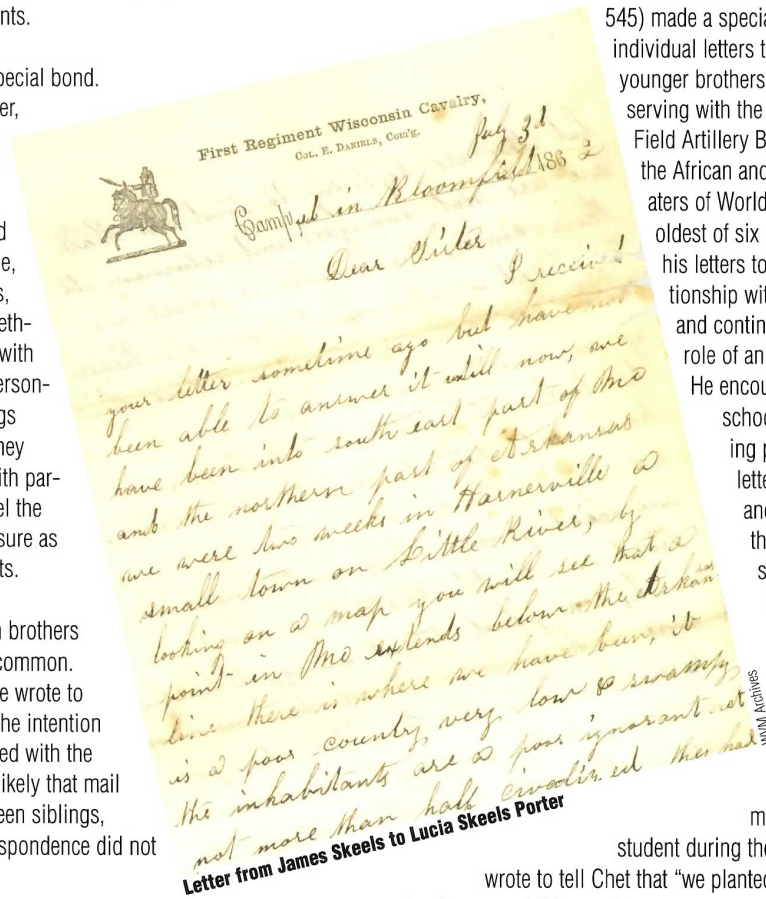 nts.
pecial bond.
er,
d
e,
s,
eth-
with
erson-
gs
hey
ith par-
el the
sure as
ts.
n brothers
common.
e wrote to
he intention
ed with the
likely that mail
een siblings,
spondence did not
First Regiment Wisconsin Cavalry,
Col. E. Daniels, Com'g.
July 3d
Camped in Bloomfield 1862
Dear Sister
I receivd
your letter sometime ago but have not
been able to answer it untill now, we
have been into south east part of Mo
and the northern part of Arkansas
we were two weeks in Harnerville a
small town on Little River, by
looking on a map you will see that a
point in Mo extends below the Arkan
line there is where we have been, it
is a poor country, very low & swampy
the inhabitants are a poor ignorant set
not more than half civalized they had
Letter from James Skeels to Lucia Skeels Porter
WVM Archives
545) made a specia
individual letters t
younger brothers
serving with the
Field Artillery B
the African and
aters of World
oldest of six
his letters to
tionship wit
and contin
role of an
He encou
schoo
ing p
lette
and
th
s
m
student during the
wrote to tell Chet that “we planted